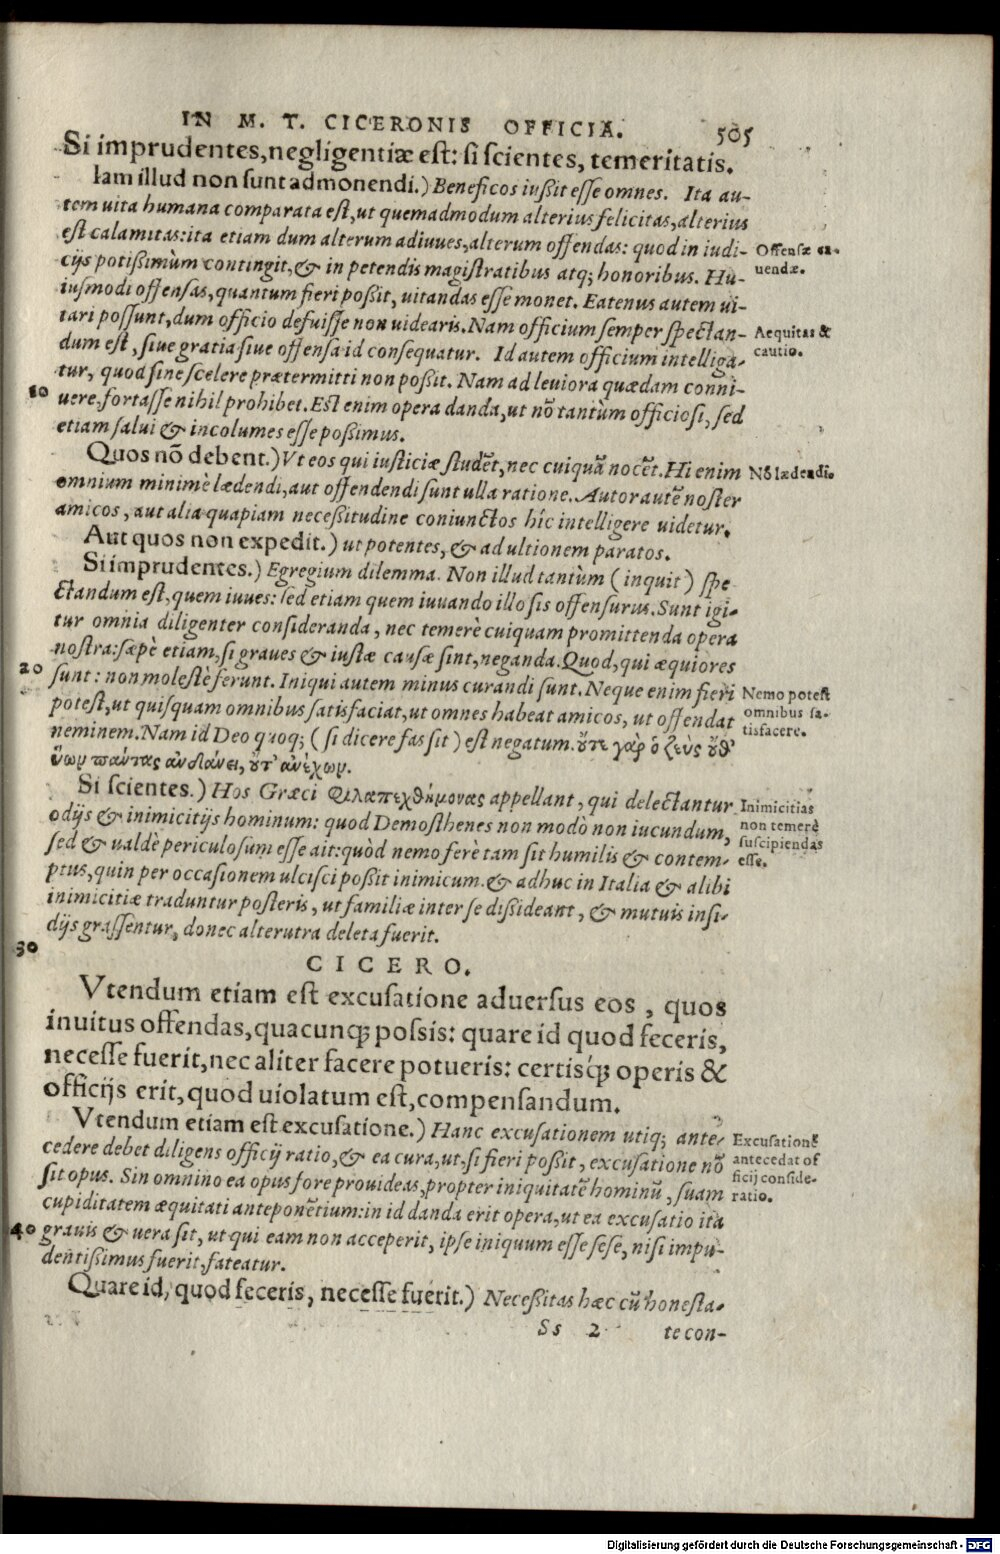 IN M. T. CICERONIS OFFICIA. 505
Si imprudentes, negligentiæ est: si scientes, temeritatis.
Iam illud non sunt admonendi.) Beneficos iußit esse omnes. Ita au-
tem uita humana comparata est, ut quemadmodum alterius felicitas, alterius
est calamitas: ita etiam dum alterum adiuues, alterum offendas: quod in iudi-
cijs potißimùm contingit, & in petendis magistratibus atq; honoribus. Hu-
iusmodi offensas, quantum fieri poßit, uitandas esse monet. Eatenus autem ui-
tari possunt, dum officio defuisse non uidearis. Nam officium semper spectan-
dum est, siue gratia siue offensa id consequatur. Id autem officium intelliga-
tur, quod sine scelere prætermitti non poßit. Nam ad leuiora quædam conni-
uere, fortasse nihil prohibet. Est enim opera danda, ut nō tantùm officiosi, sed
etiam salui & incolumes esse poßimus.
Offensæ ca-
uendæ.
Aequitas &
cautio.
10
Quos nō debent.) Vt eos qui iusticiæ studēt, nec cuiquā nocēt. Hi enim
omnium minimè lædendi, aut offendendi sunt ulla ratione. Autor autē noster
amicos, aut alia quapiam neceßitudine coniunctos hîc intelligere uidetur.
Nō lædendi.
Aut quos non expedit.) ut potentes, & ad ultionem paratos.
Si imprudentes.) Egregium dilemma. Non illud tantùm (inquit) spe-
ctandum est, quem iuues: sed etiam quem iuuando illo sis offensurus. Sunt igi-
tur omnia diligenter consideranda, nec temerè cuiquam promittenda opera
nostra: sæpè etiam, si graues & iustæ causæ sint, neganda. Quod, qui æquiores
sunt: non molestè ferunt. Iniqui autem minus curandi sunt. Neque enim fieri
potest, ut quisquam omnibus satisfaciat, ut omnes habeat amicos, ut offendat
neminem. Nam id Deo quoq; (si dicere fas sit) est negatum. ὄυτε γὰρ ὁ ζεὺς ὄυθ'
ὕων παύτας ἁνδάνει, ὄυτ' ἀνέχων.
20
Nemo potest
omnibus sa-
tisfacere.
Si scientes.) Hos Græci Φιλαπεχθήμονας appellant, qui delectantur
odijs & inimicitijs hominum: quod Demosthenes non modò non iucundum,
sed & ualdè periculosum esse ait: quòd nemo ferè tam sit humilis & contem-
ptus, quin per occasionem ulcisci poßit inimicum. & adhuc in Italia & alibi
inimicitiæ traduntur posteris, ut familiæ inter se dißideant, & mutuis insi-
dijs grassentur, donec alterutra deleta fuerit.
Inimicitias
non temerè
suscipiendas
esse.
30
CICERO.
Vtendum etiam est excusatione aduersus eos, quos
inuitus offendas, quacunq; possis: quare id quod feceris,
necesse fuerit, nec aliter facere potueris: certisq́; operis &
officijs erit, quod uiolatum est, compensandum.
Vtendum etiam est excusatione.) Hanc excusationem utiq; ante-
cedere debet diligens officij ratio, & ea cura, ut, si fieri poßit, excusatione nō
sit opus. Sin omnino ea opus fore prouideas, propter iniquitatē hominū, suam
cupiditatem æquitati anteponētium: in id danda erit opera, ut ea excusatio ita
grauis & uera sit, ut qui eam non acceperit, ipse iniquum esse sese, nisi impu-
dentißimus fuerit, fateatur.
Excusationē
antecedat of
ficij conside-
ratio.
40
Quare id, quod feceris, necesse fuerit.) Neceßitas hæc cū honesta-
Ss 2 te con-
Digitalisierung gefördert durch die Deutsche Forschungsgemeinschaft - DFG